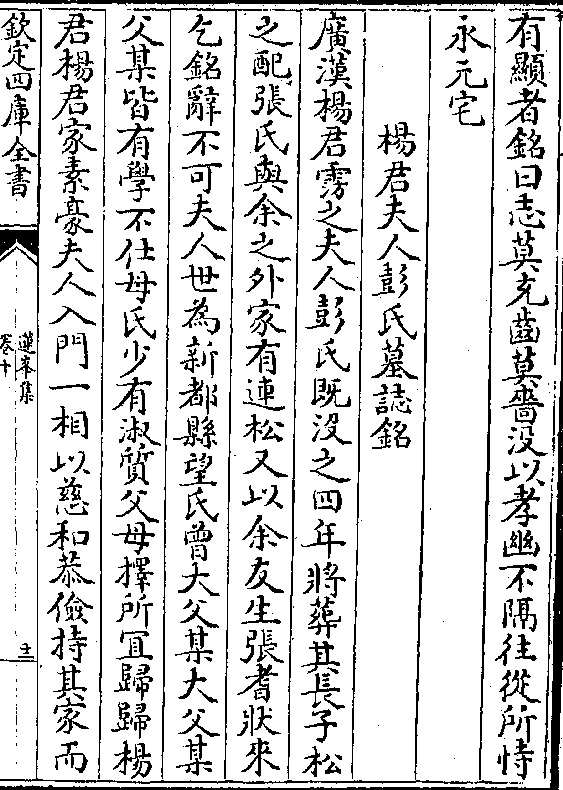 有顯者銘曰志莫充齒莫嗇没以孝幽不隔往從所恃
永元宅
楊君夫人彭氏墓誌銘
廣漢楊君雱之夫人彭氏既没之四年將葬其長子松
之配張氏與余之外家有連松又以余友生張耆狀來
乞銘辭不可夫人世為新都縣望氏曾大父某大父某
父某皆有學不仕母氏少有淑質父母擇所宜歸歸楊
君楊君家素豪夫人入門一相以慈和恭儉持其家而
欽定四庫全書
蓮峯集
卷十
十一